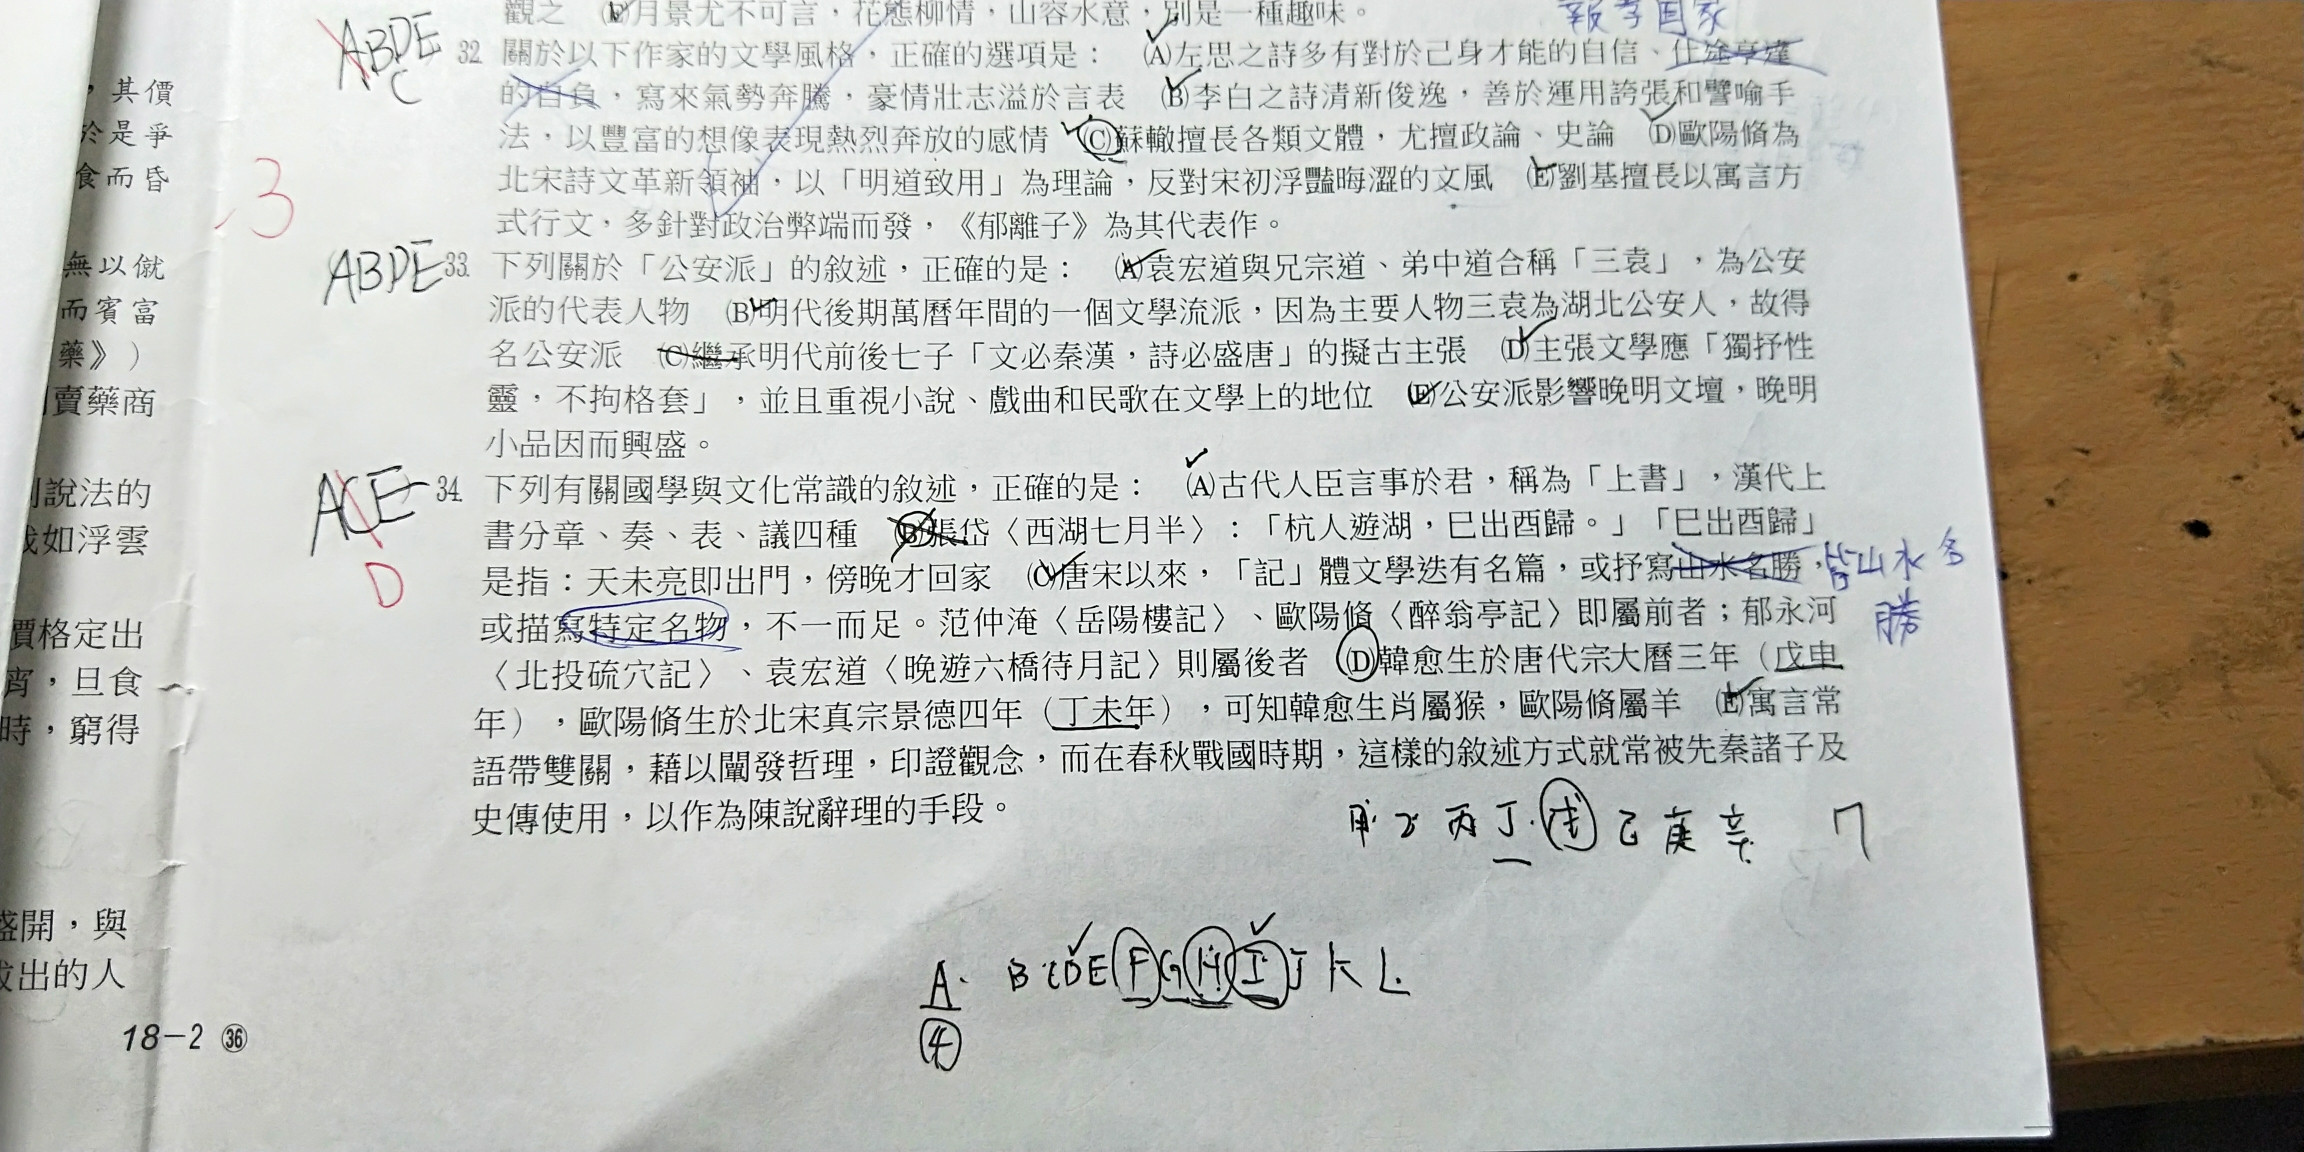 觀之　(E)月景尤不可言，花態柳情，山容水意，別是一種趣味。
報孝国家
ABDE
C
32. 關於以下作家的文學風格，正確的選項是：　(A)左思之詩多有對於己身才能的自信、仕途亨達
的自負，寫來氣勢奔騰，豪情壯志溢於言表　(B)李白之詩清新俊逸，善於運用誇張和譬喻手
法，以豐富的想像表現熱烈奔放的感情　(C)蘇轍擅長各類文體，尤擅政論、史論　(D)歐陽脩為
北宋詩文革新領袖，以「明道致用」為理論，反對宋初浮豔晦澀的文風　(E)劉基擅長以寓言方
式行文，多針對政治弊端而發，《郁離子》為其代表作。
3
ABDE
33. 下列關於「公安派」的敘述，正確的是：　(A)袁宏道與兄宗道、弟中道合稱「三袁」，為公安
派的代表人物　(B)明代後期萬曆年間的一個文學流派，因為主要人物三袁為湖北公安人，故得
名公安派　(C)繼承明代前後七子「文必秦漢，詩必盛唐」的擬古主張　(D)主張文學應「獨抒性
靈，不拘格套」，並且重視小說、戲曲和民歌在文學上的地位　(E)公安派影響晚明文壇，晚明
小品因而興盛。
ACE
D
34. 下列有關國學與文化常識的敘述，正確的是：　(A)古代人臣言事於君，稱為「上書」，漢代上
書分章、奏、表、議四種　(B)張岱〈西湖七月半〉：「杭人遊湖，巳出酉歸。」「巳出酉歸」
是指：天未亮即出門，傍晚才回家　(C)唐宋以來，「記」體文學迭有名篇，或抒寫山水名勝，
皆山水名
勝
或描寫特定名物，不一而足。范仲淹〈岳陽樓記〉、歐陽脩〈醉翁亭記〉即屬前者；郁永河
〈北投硫穴記〉、袁宏道〈晚遊六橋待月記〉則屬後者　(D)韓愈生於唐代宗大曆三年（戊申
年），歐陽脩生於北宋真宗景德四年（丁未年），可知韓愈生肖屬猴，歐陽脩屬羊　(E)寓言常
語帶雙關，藉以闡發哲理，印證觀念，而在春秋戰國時期，這樣的敘述方式就常被先秦諸子及
史傳使用，以作為陳說辭理的手段。
甲乙丙丁戊己庚辛
A B C D E F G H I J K L
4
，其價
於是爭
食而昏
無以僦
而賓富
藥》）
賣藥商
說法的
我如浮雲
價格定出
宵，旦食
時，窮得
盛開，與
出的人
18－2 ㊱